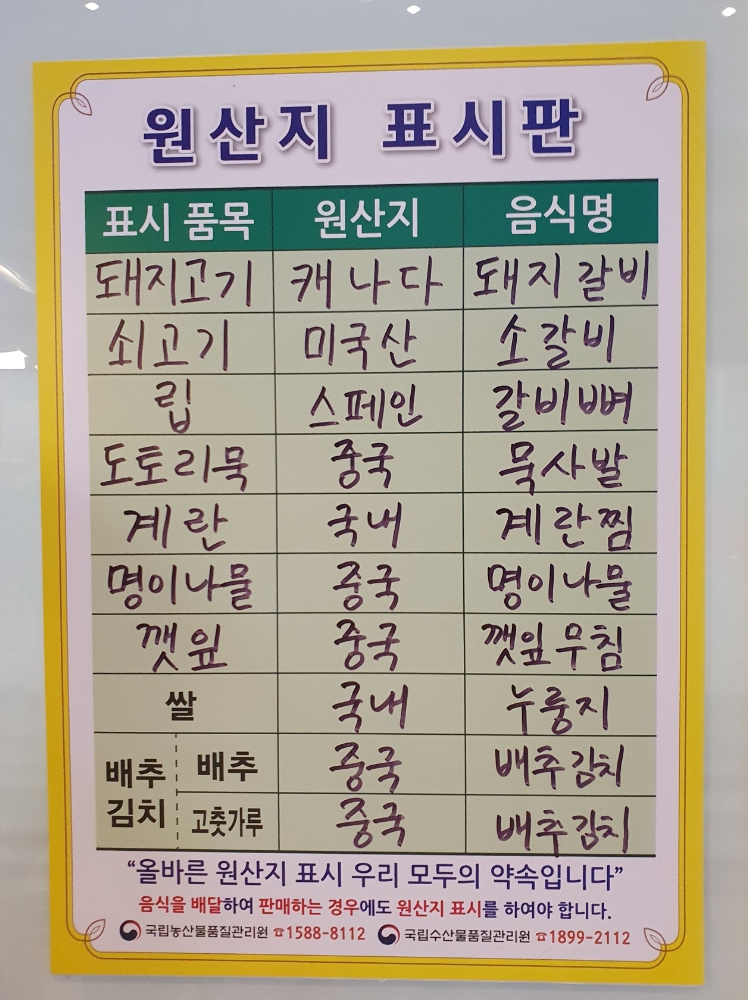 원산지 표시판
표시 품목 원산지 음식명
돼지고기 캐나다 돼지갈비
쇠고기 미국산 소갈비
립 스페인 갈비뼈
도토리묵 중국 묵사발
계란 국내 계란찜
명이나물 중국 명이나물
깻잎 중국 깻잎무침
쌀 국내 누룽지
배추김치 배추 중국 배추김치
고춧가루 중국 배추김치
“올바른 원산지 표시 우리 모두의 약속입니다”
음식을 배달하여 판매하는 경우에도 원산지 표시를 하여야 합니다.
국립농산물품질관리원 ☎1588-8112 국립수산물품질관리원 ☎1899-2112